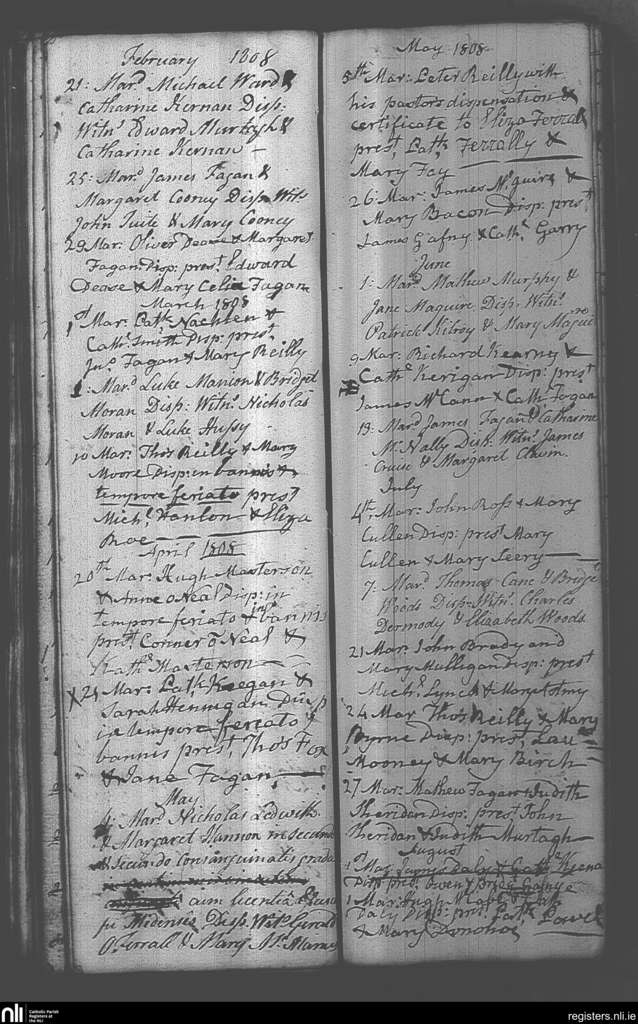 February 1808
21: Mard Michael Ward &
Catharine Kernan Disp:
Witns Edward Murtagh &
Catharine Kernan -
25: Mard James Fagan &
Margaret Cooney Disp: Wits
John Tuite & Mary Cooney
29 Mar: Oliver Dease & Margaret
Fagan Disp: prest Edward
Dease & Mary Celia Fagan
March 1808
1st Mar: Patk Naghten &
Cathe Smith Disp: prest
Jno Fagan & Mary Reilly
1: Mard Luke Manion & Bridget
Moran Disp: Witns Nicholas
Moran & Luke Hussy
10 Mar: Thos Reilly & Mary
Moore Disp: in bannis &
tempore feriato prest
Michl Hanlon & Eliza
Roe
April 1808
20th Mar: Hugh Masterson
& Anne o Neal Disp: in
tempore feriato & in bannis
prest Conner O Neal &
Kathe Masterson
X 24 Mar: Patk Keegan &
Sarah Hennigan Disp
in tempore feriato &
bannis prest Thos Fox
& Jane Fagan
May
4 Mard Nicholas Ledwith
& Margaret Hannon in secundo
& secundo consanguinitatis gradu
cum licentia
pi Midensis Disp. Wits Gerald
O'Ferrall & Mary
May 1808
5th Mar: Peter Reilly with
his pastors dispensation &
certificate to Eliza Ferral
prest Patk Ferrally &
Mary Fay
26: Mar: James McGuire &
Mary Bacon Disp: prest
James Gafny & Cathe Garry
June
1: Mard Mathew Murphy &
Jane Maguire Disp: Witns
Patrick Kilroy & Mary Maguire
9 Mar: Richard Kearney &
Cathe Kerigan Disp: prest
James McCann & Cath Fagan
13: Mard James Fagan & Catharine
McNally Disp. Witns James
Cruise & Margaret
July
4th Mar: John Ross & Mary
Cullen Disp: prest Mary
Cullen & Mary Leery
7: Mard Thomas Cane & Bridget
Woods Disp: Witns Charles
Dermody & Elizabeth Woods
21 Mar: John Brady and
Mary Mulligan Disp: prest
Michl Lynch & Mary
24 Mar Thos Reilly & Mary
Byrne Disp: prest Lau
Mooney & Mary Birch
27 Mar: Mathew Fagan & Judith
Sheridan Disp: prest John
Sheridan & Judith Murtagh
August
1st Mar: James Daly & Cathe
Disp: prest Owen
1 Mar: Hugh
Daly Disp: prest Patk
& Mary Donohoe
nli
Catholic Parish
Registers at
the NLI
registers.nli.ie